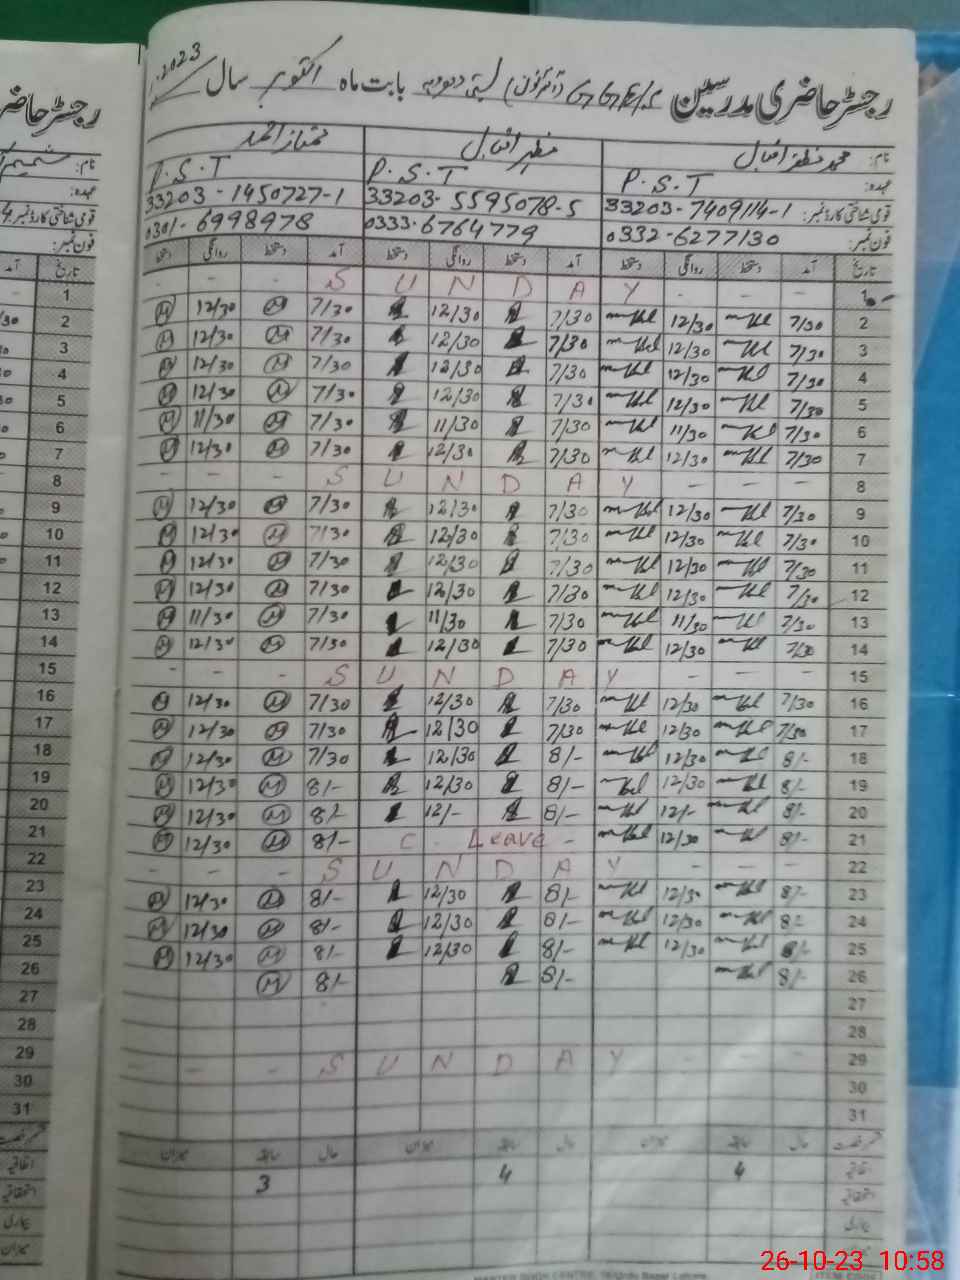 رجسٹر حاضری مدرسین G.G.E/S بستی بابت ماہ اکتوبر سال 2023
نام: محمد مظفر اقبال مظہر اقبال ممتاز احمد
عہدہ: P.S.T P.S.T P.S.T
قومی شناختی کارڈ نمبر: 33203-7409114-1 33203-5595078-5 33203-1450727-1
فون نمبر: 0332-6277130 0333-6764779 0301-6998978
تاریخ آمد دستخط روانگی دستخط آمد دستخط روانگی دستخط آمد دستخط روانگی دستخط
1 - - - S U N D A Y - - -
2 7/30 12/30 7/30 12/30 7/30 M 12/30 M
3 7/30 12/30 7/30 12/30 7/30 M 12/30 M
4 7/30 12/30 7/30 12/30 7/30 M 12/30 M
5 7/30 12/30 7/30 12/30 7/30 M 12/30 M
6 7/30 11/30 7/30 11/30 7/30 M 11/30 M
7 7/30 12/30 7/30 12/30 7/30 M 12/30 M
8 - - - S U N D A Y - - -
9 7/30 12/30 7/30 12/30 7/30 M 12/30 M
10 7/30 12/30 7/30 12/30 7/30 M 12/30 M
11 7/30 12/30 7/30 12/30 7/30 M 12/30 M
12 7/30 12/30 7/30 12/30 7/30 M 12/30 M
13 7/30 11/30 7/30 11/30 7/30 M 11/30 M
14 7/30 12/30 7/30 12/30 7/30 M 12/30 M
15 - - - S U N D A Y - - -
16 7/30 12/30 7/30 12/30 7/30 M 12/30 M
17 7/30 12/30 7/30 12/30 7/30 M 12/30 M
18 8/- 12/30 8/- 12/30 7/30 M 12/30 M
19 8/- 12/30 8/- 12/30 8/- M 12/30 M
20 8/- 12/- 8/- 12/- 8/- M 12/30 M
21 8/- 12/30 C. Leave - 8/- M 12/30 M
22 - - - S U N D A Y - - -
23 8/- 12/30 8/- 12/30 8/- M 12/30 M
24 8/- 12/30 8/- 12/30 8/- M 12/30 M
25 8/- 12/30 8/- 12/30 8/- M 12/30 M
26 8/- 8/- 8/- M
27
28
29 - - - S U N D A Y - - -
30
31
حال سابقہ میزان حال سابقہ میزان حال سابقہ میزان
اتفاقیہ 4 4 3
استحقاقیہ
بیماری
میزان
رجسٹر حاضر
نام:
عہدہ:
قومی شناختی کارڈ نمبر:
فون نمبر:
تاریخ آمد
1
2
3
4
5
6
7
8
9
10
11
12
13
14
15
16
17
18
19
20
21
22
23
24
25
26
27
28
29
30
31
اتفاقیہ
استحقاقیہ
بیماری
میزان
26-10-23 10:58